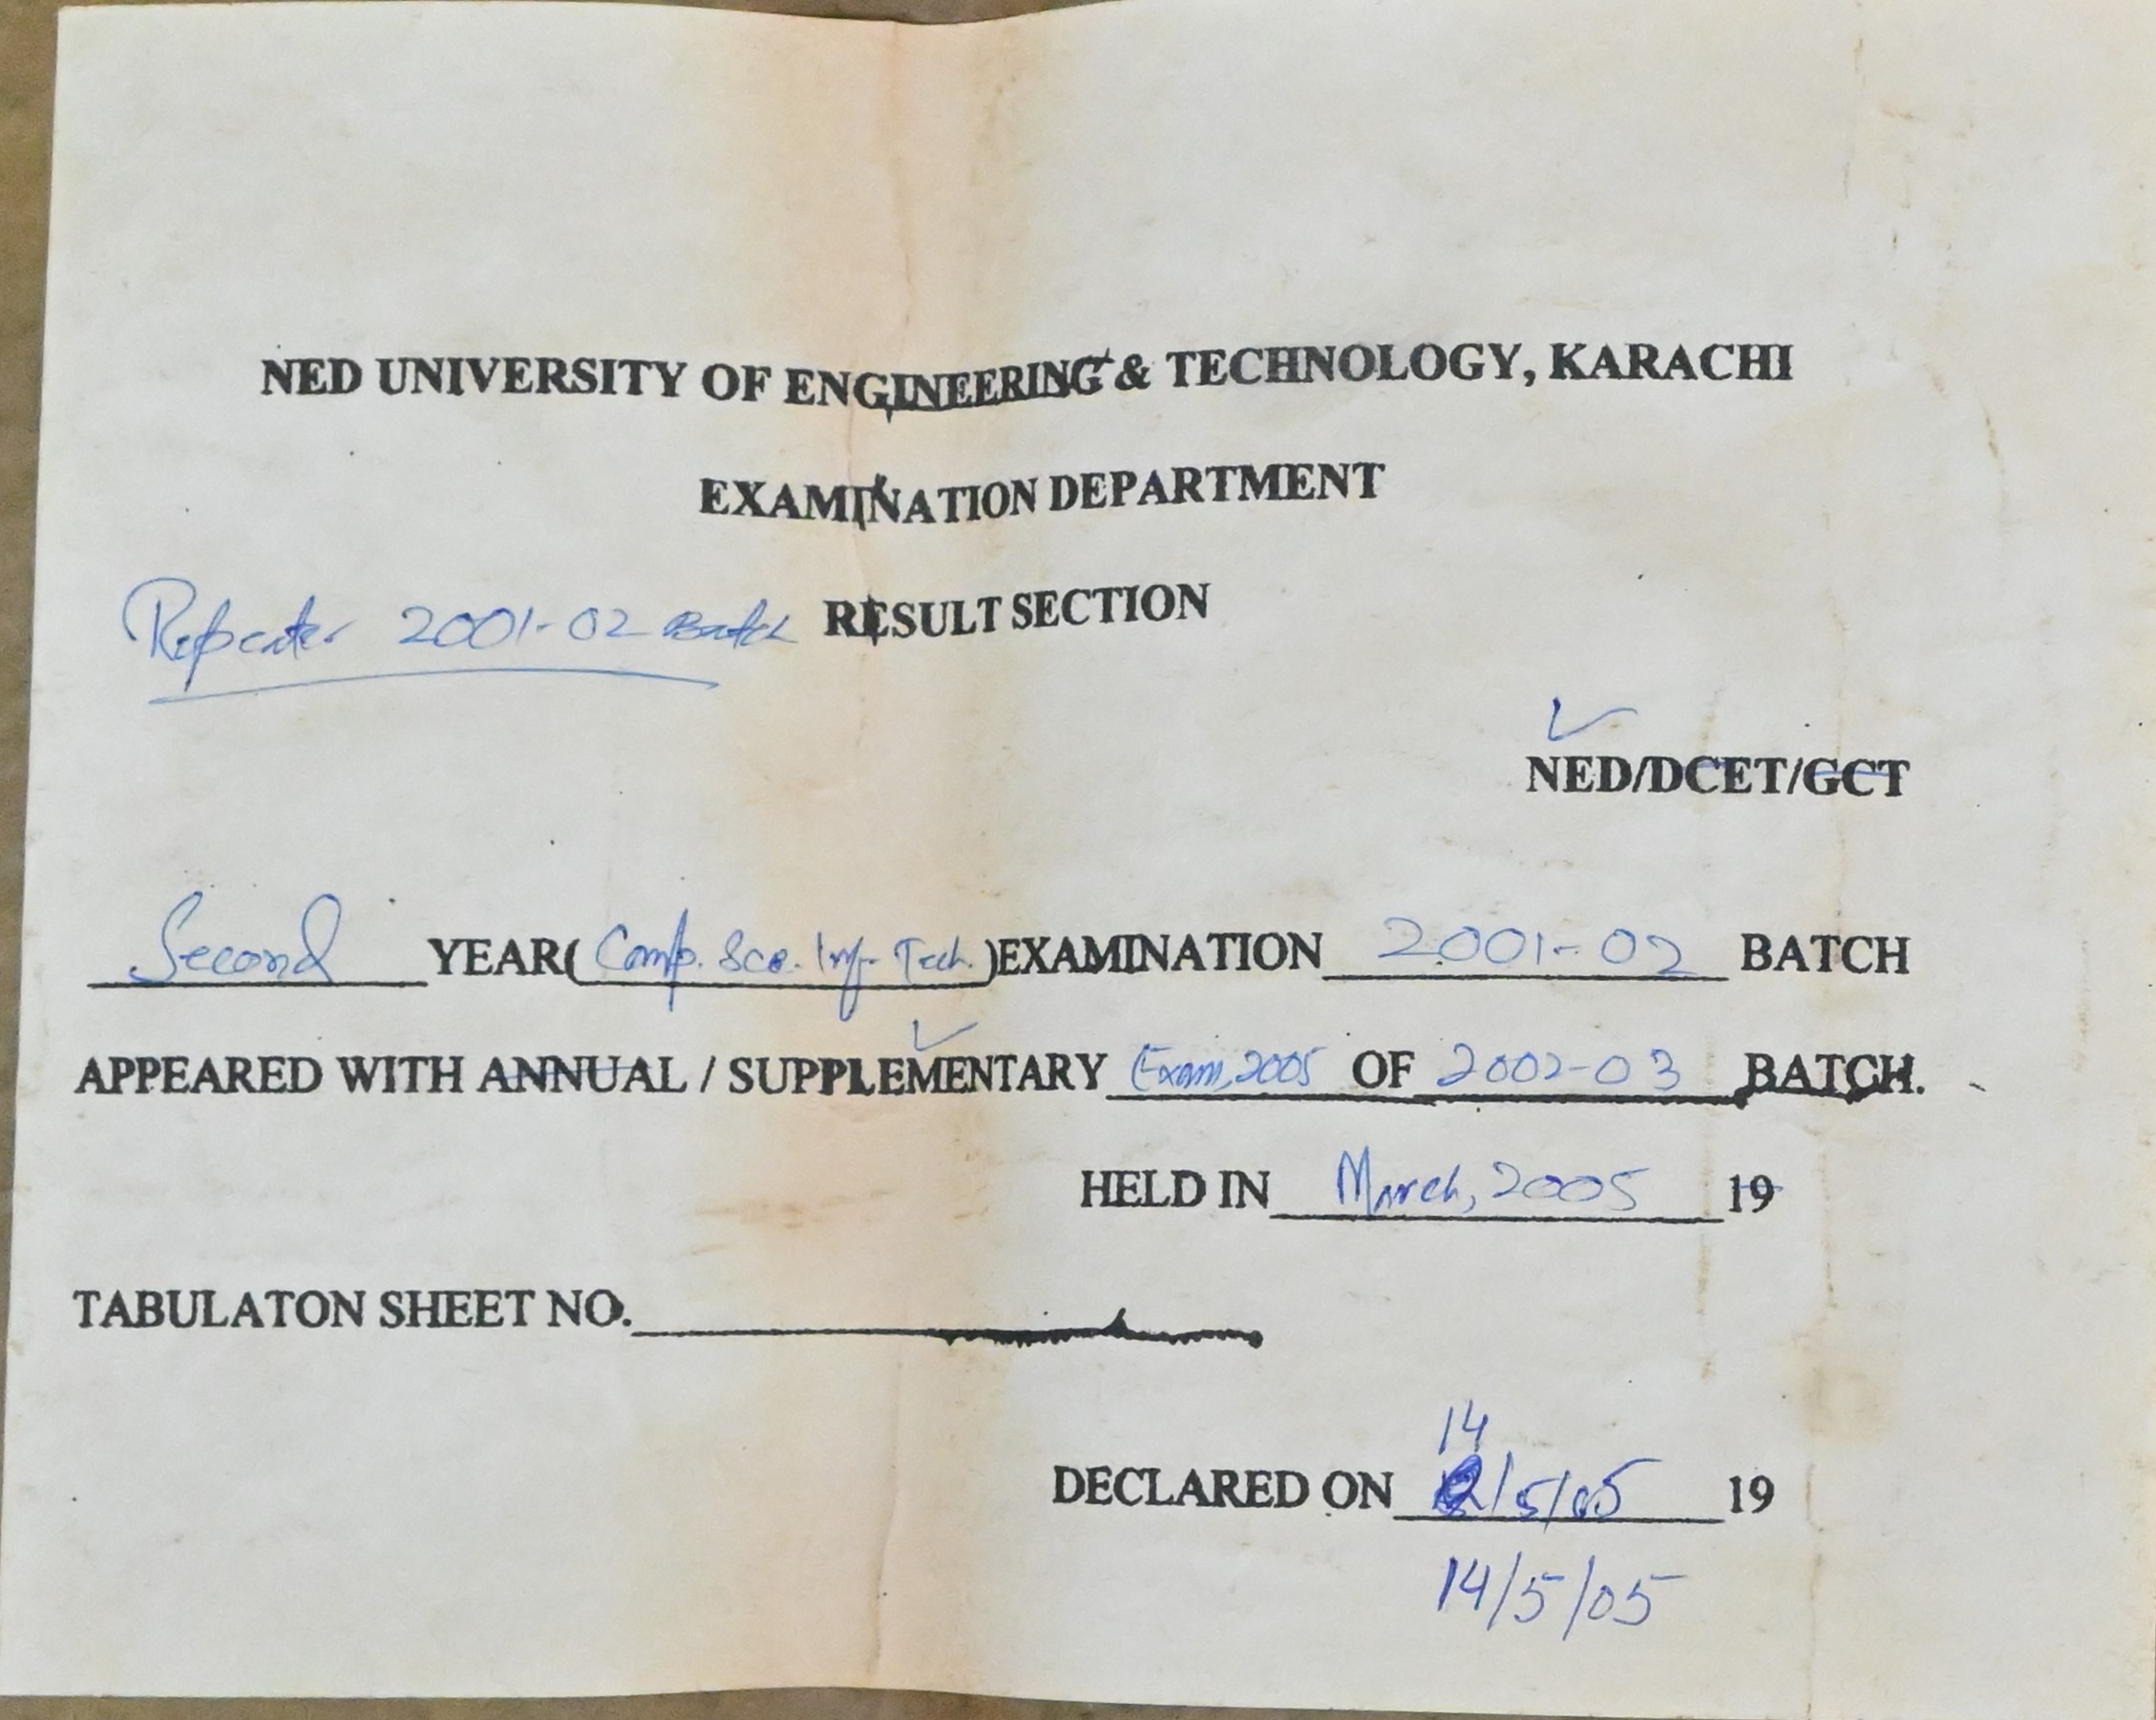 NED UNIVERSITY OF ENGINEERING & TECHNOLOGY, KARACHI
EXAMINATION DEPARTMENT
Repeater 2001-02 Batch RESULT SECTION
NED/DCET/GCT
Second YEAR( Comp. Sce. Inf. Tech. )EXAMINATION 2001-02 BATCH
APPEARED WITH ANNUAL / SUPPLEMENTARY Exam, 2005 OF 2002-03 BATCH.
HELD IN March, 2005 19
TABULATON SHEET NO.
14
DECLARED ON /5/05 19
14/5/05